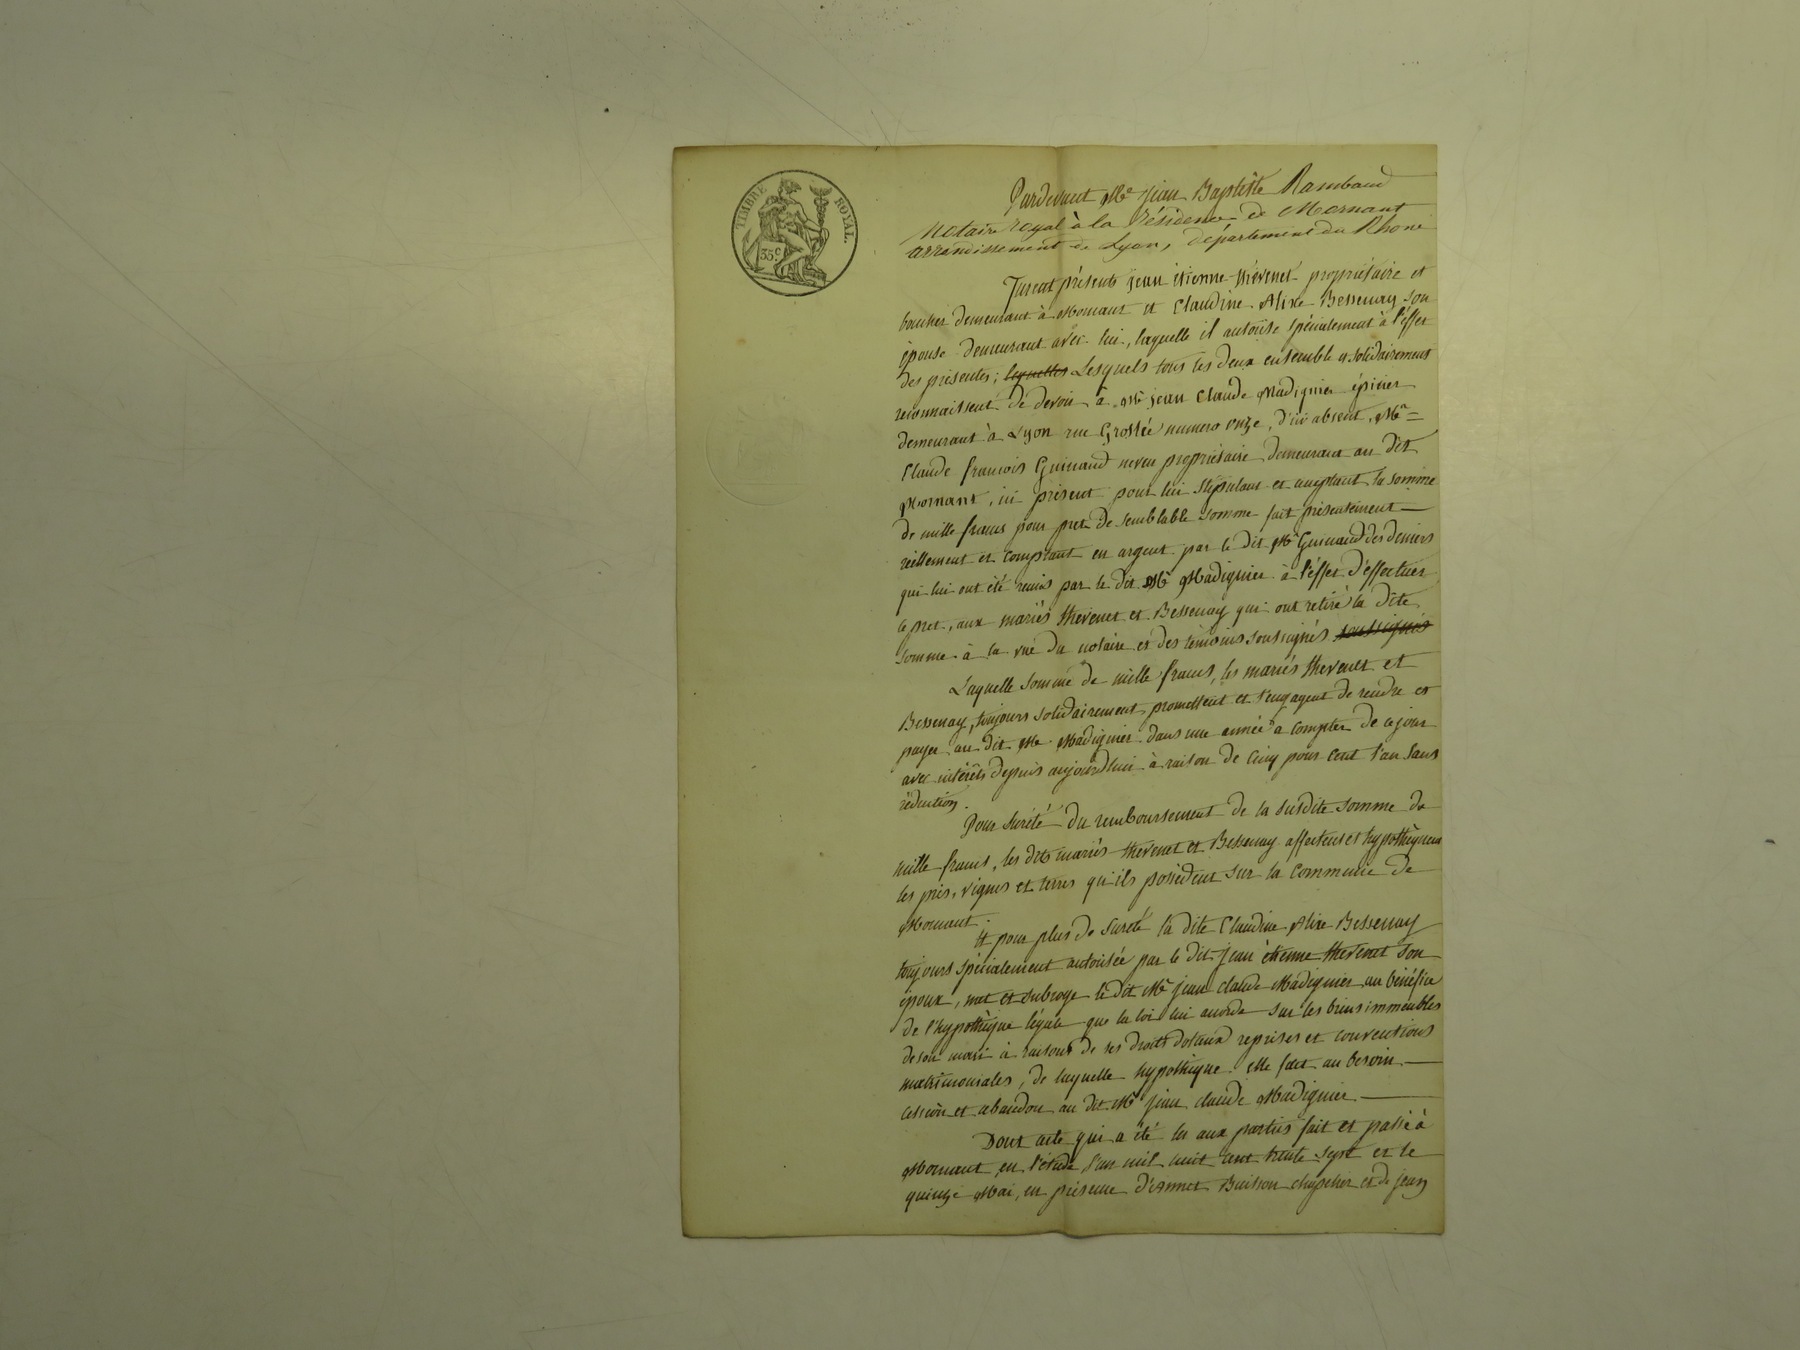 TIMBRE ROYAL.
35 c
Pardevant Me Jean Baptiste Rambaud
Notaire royal à la résidence de Mornant
arrondissement de Lyon, département du Rhone
Furent présents Jean étienne thévenet propriétaire et
boucher demeurant à Mornant et Claudine Alixe Bessenay son
épouse demeurant avec lui, laquelle il autorise spécialement à l'éffet
des présentes; lesquelles Lesquels tous les deux ensemble et solidairement
reconnaissent de devoir à Mr jean Claude Madignier épicier
demeurant à Lyon rue Grolée numero onze, d'ici absent, Mr =
Claude françois Guinand neveu propriétaire demeurant au dit
Mornant, ici présent pour lui stipulant et acceptant la somme
de mille francs pour pret de semblable somme fait présentement
réellement et comptant en argent par le dit Mr Guinand des deniers
qui lui ont été remis par le dit Mr Madignier à l'éffet d'éffectuer
ce pret, aux mariés thevenet et Bessenay qui ont retiré la dite
somme à la vue du notaire et des témoins soussignés soussignés
Laquelle somme de mille francs, les mariés thevenet et
Bessenay, toujours solidairement promettent et s'engagent de rendre et
payer au dit Mr Madignier dans une année à compter de ce jour
avec intérêts depuis aujourd'hui à raison de cinq pour cent l'an sans
réduction.
Pour sureté du remboursement de la susdite somme de
mille francs, les dits mariés thevenet et Bessenay affectent et hypothèquent
les prés, vignes et terres qu'ils possèdent sur la commune de
Mornant.
Et pour plus de sureté la dite Claudine Alixe Bessenay
toujours spécialement autorisée par le dit jean étienne thevenet son
époux, met et subroge le dit Mr jean claude Madignier au bénéfice
de l'hypothèque légale que la loi lui accorde sur les biens immeubles
de son mari à raisons de ses droits dotaux reprises et conventions
matrimoniales, de laquelle hypothèque elle fait au besoin
cession et abandon au dit Mr jean claude Madignier
Dont acte qui a été lu aux parties fait et passé à
Mornant en l'étude l'an mil huit cent trente sept et le
quinze Mai, en présence d'Annet Buisson chapelier et de jean